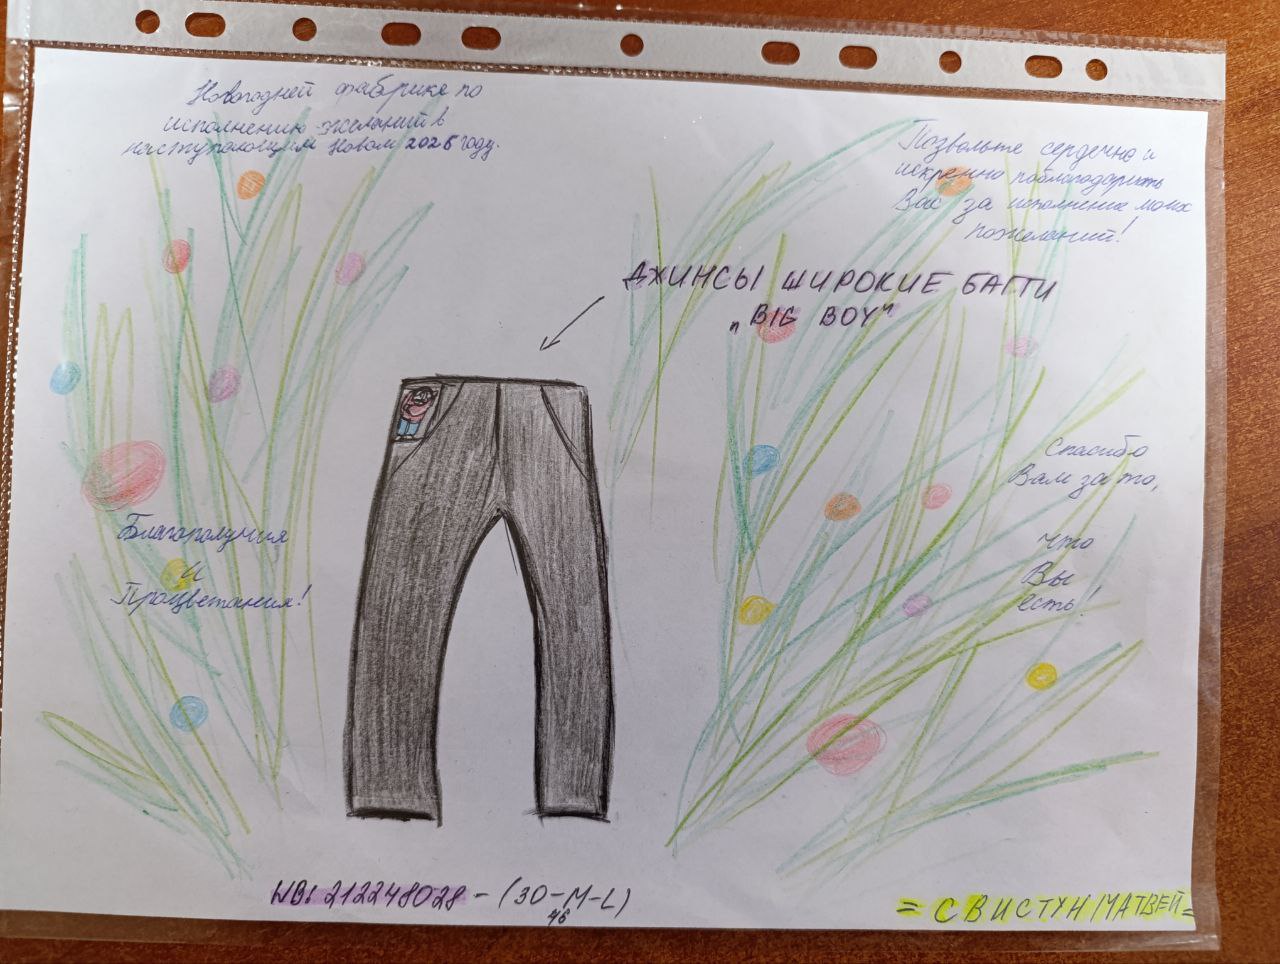 Новогодней фабрике по
исполнению желаний в
наступающим Новом 2026 году.
Позвольте сердечно и
искренно поблагодарить
Вас за исполнение моих
пожеланий!
ДЖИНСЫ ШИРОКИЕ БАГГИ
„BIG BOY"
Спасибо
Вам за то,
что
Вы
есть!
Благополучия
и
Процветания!
WB: 212248028 - (30-M-L)
46
= СВИСТУН МАТВЕЙ =